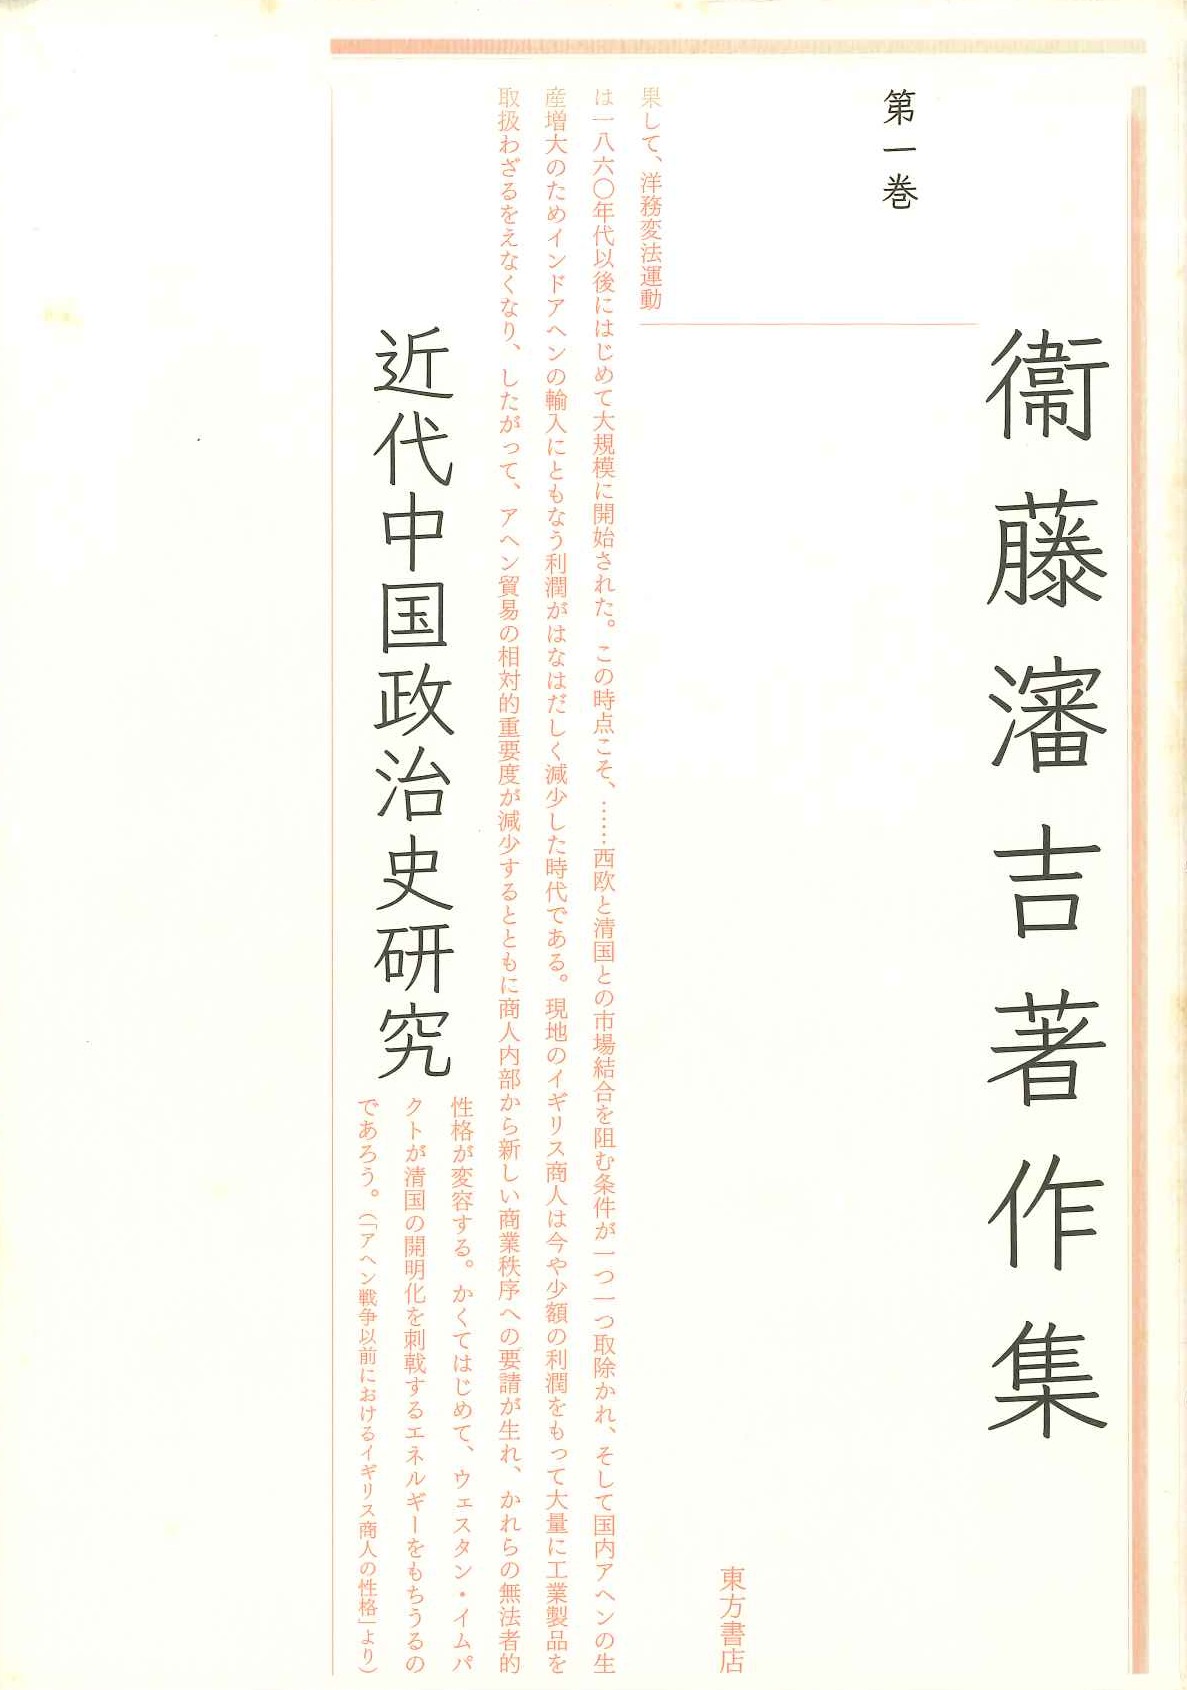 衞藤瀋吉著作集
第一巻
東方書店
果して、洋務変法運動
は一八六〇年代以後にはじめて大規模に開始された。この時点こそ、……西欧と清国との市場結合を阻む条件が一つ一つ取除かれ、そして国内アヘンの生
産増大のためインドアヘンの輸入にともなう利潤がはなはだしく減少した時代である。現地のイギリス商人は今や少額の利潤をもって大量に工業製品を
取扱わざるをえなくなり、したがって、アヘン貿易の相対的重要度が減少するとともに商人内部から新しい商業秩序への要請が生れ、かれらの無法者的
近代中国政治史研究
性格が変容する。かくてはじめて、ウェスタン・イムパ
クトが清国の開明化を刺戟するエネルギーをもちうるの
であろう。(「アヘン戦争以前におけるイギリス商人の性格」より)